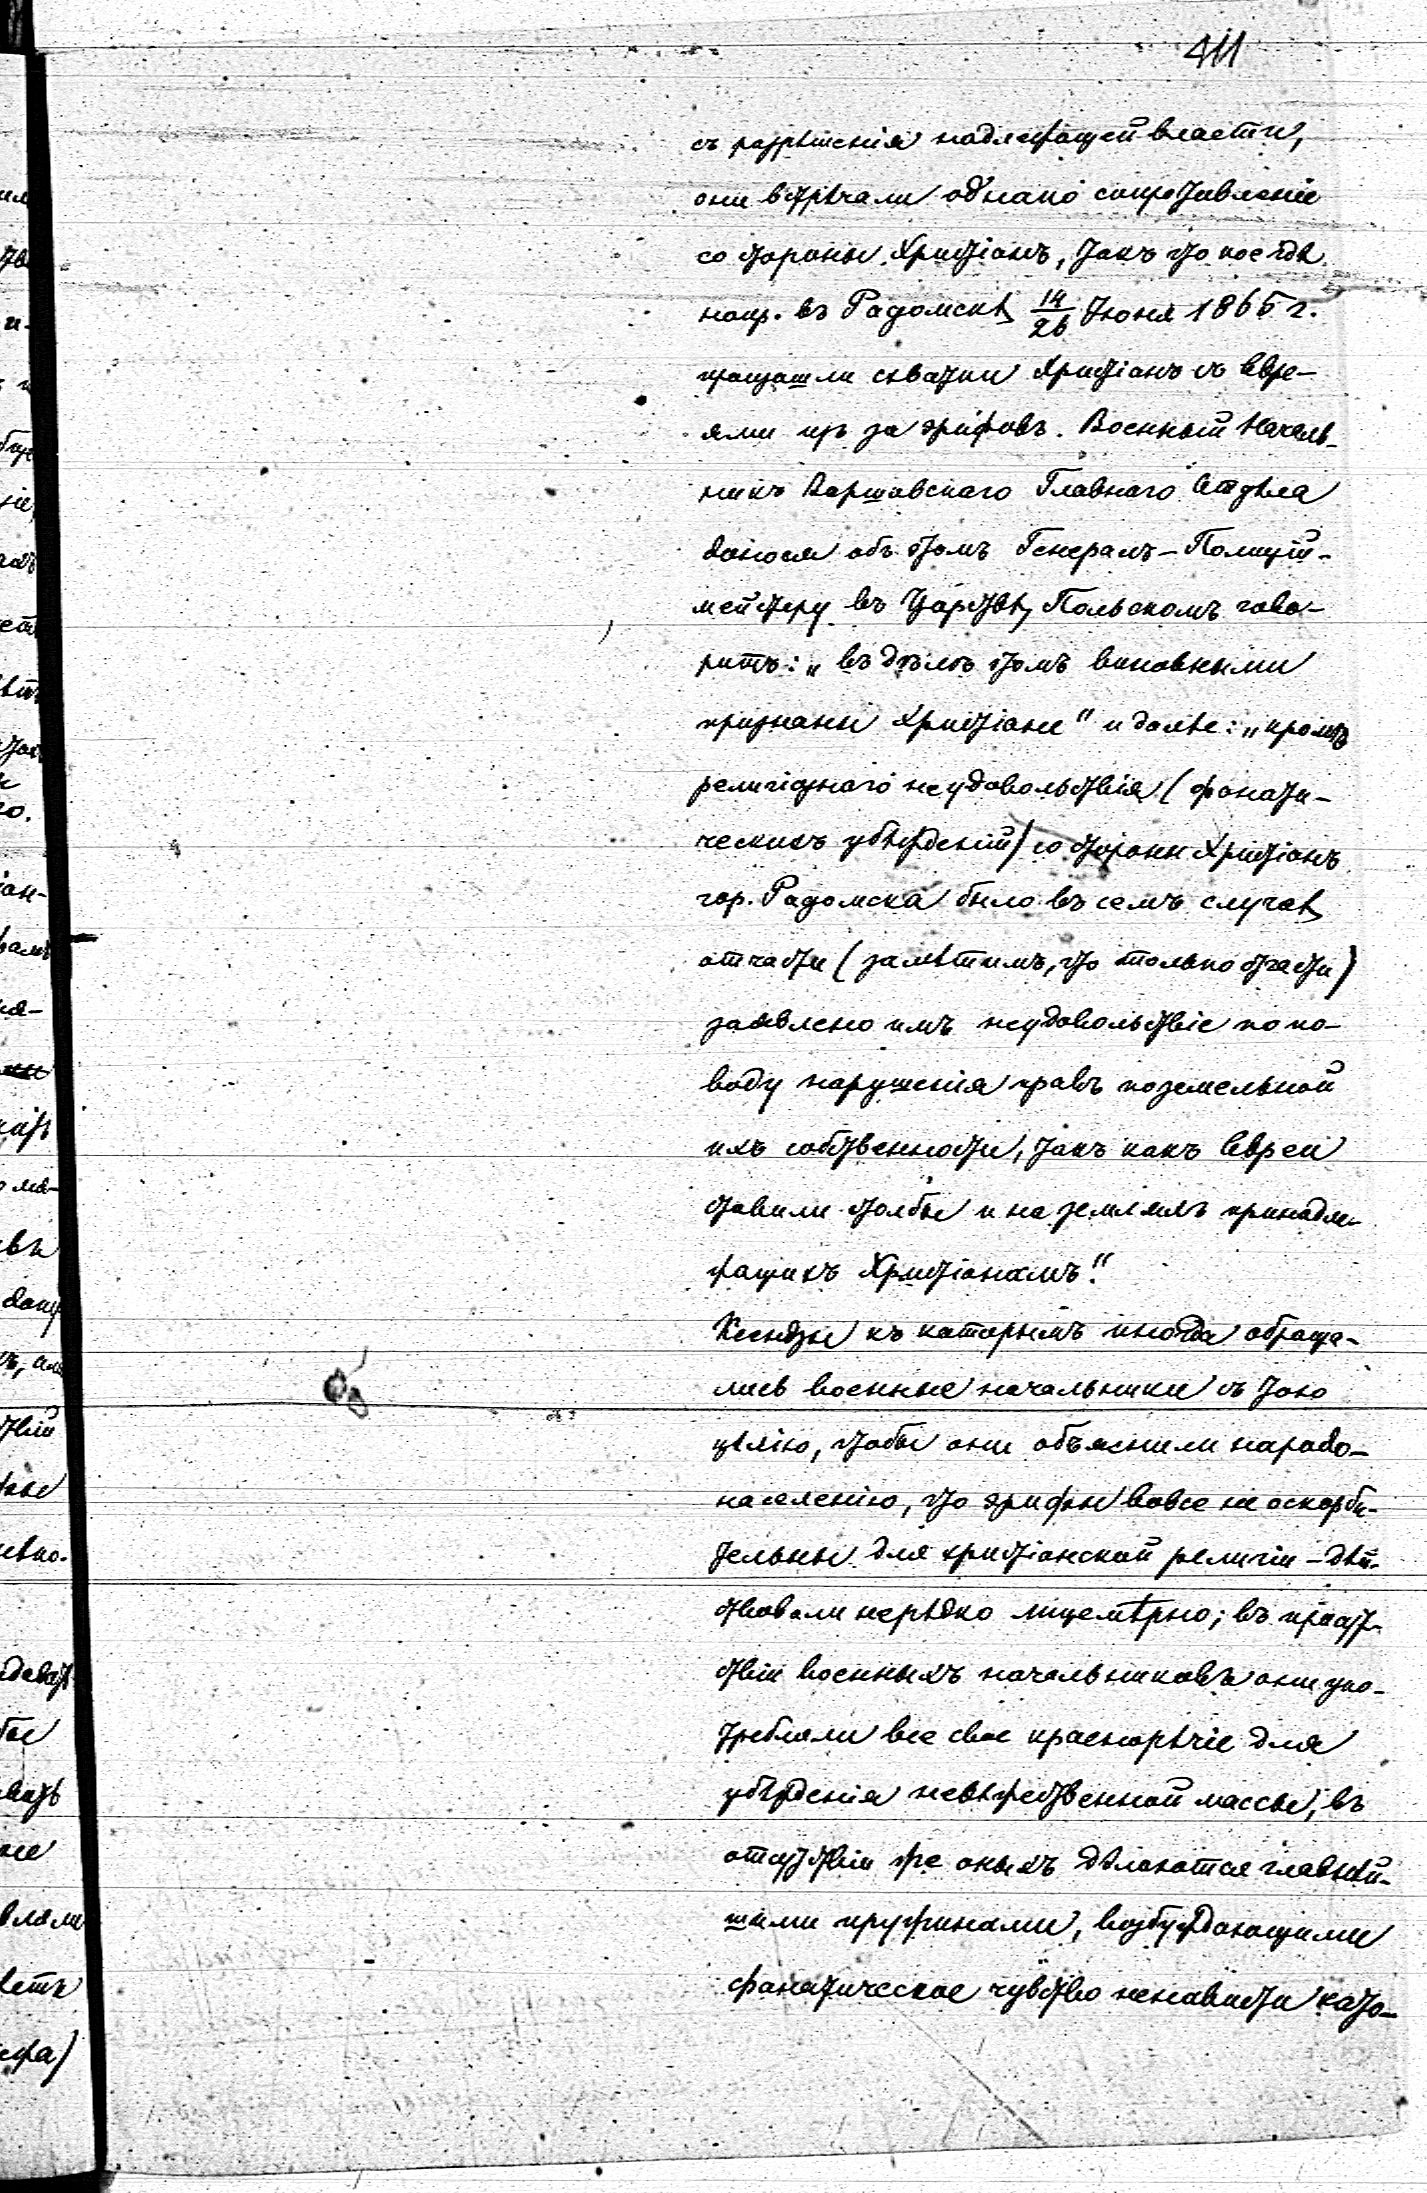 411
съ разрѣшенія надлежащей власти,
они встрѣчали однако сопротивленіе
со стороны Христіанъ, такъ что
напр. въ Радомскѣ 14/26 Іюня 1865 г.
произошли схватки Христіанъ съ Евре-
ями изъ за эрифовъ. Военный Началь-
никъ Варшавскаго Главнаго Отдѣла
донося объ этомъ Генералъ-Полицій-
мейстеру въ Царствѣ Польскомъ гово-
ритъ: „въ дѣлѣ этомъ виновными
признаны Христіане" и далѣе: „кромѣ
религіознаго неудовольствія (фанати-
ческихъ убѣжденій) со стороны Христіанъ
гор. Радомска было въ семъ случаѣ
отчасти (замѣтимъ, что только отчасти)
заявлено имъ неудовольствіе по по-
воду нарушенія правъ поземельной
ихъ собственности, такъ какъ Евреи
ставили столбы и на земляхъ принадле-
жащихъ Христіанамъ."
Ксендзы къ которымъ иногда обраща-
лись военные начальники съ тою
цѣлію, чтобы они объяснили народо-
населенію, что эрифы вовсе не оскорби-
тельны для христіанской религіи – дѣй-
ствовали нерѣдко лицемѣрно; въ присут-
ствіи военныхъ начальниковъ они упо-
требляли все свое краснорѣчіе для
убѣжденія невѣжественной массы, въ
отсутствіи же оныхъ дѣлаются главнѣй-
шими пружинами, возбуждающими
фанатическое чувство ненависти като-